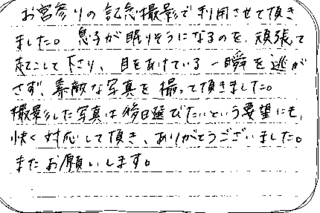 お宮参りの記念撮影で利用させて頂き
ました。息子が眠りそうになるのを、頑張って
起こして下さり、目をあけている一瞬を逃が
さず、素敵な写真を撮って頂きました。
撮影した写真は後日選びたいという要望にも、
快く対応して頂き、ありがとうございました。
またお願いします。